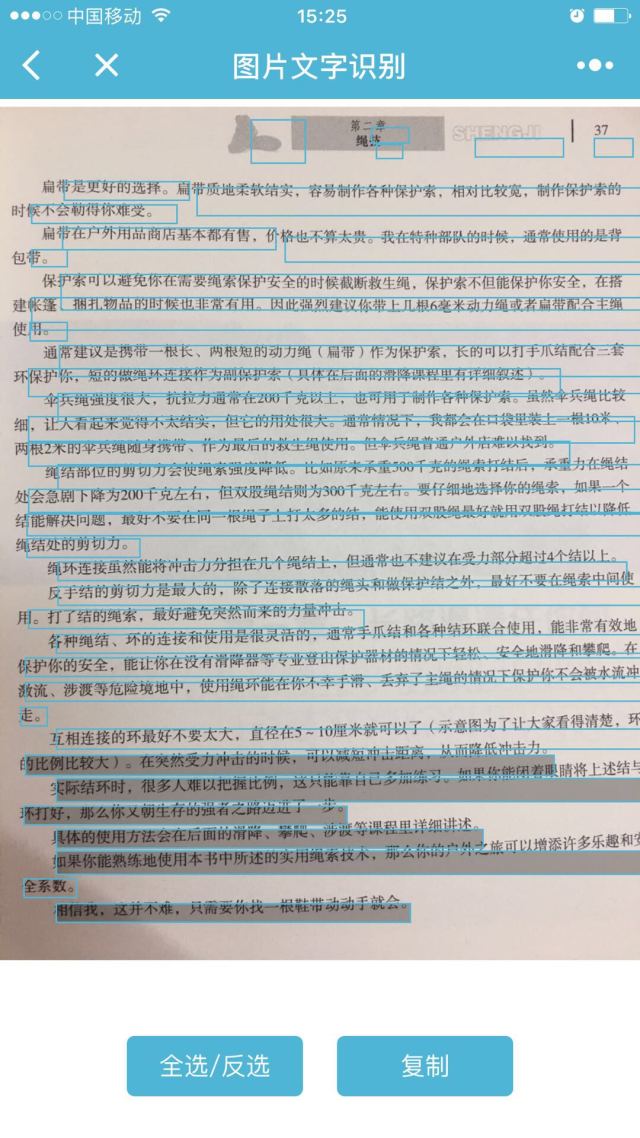 中国移动
15:25
图片文字识别
第二章
绳技
SHENGJI
37
扁带是更好的选择。扁带质地柔软结实，容易制作各种保护索，相对比较宽，制作保护索的
时候不会勒得你难受。
扁带在户外用品商店基本都有售，价格也不算太贵。我在特种部队的时候，通常使用的是背
包带。
保护索可以避免你在需要绳索保护安全的时候截断救生绳，保护索不但能保护你安全，在搭
建帐篷、捆扎物品的时候也非常有用。因此强烈建议你带上几根6毫米动力绳或者扁带配合主绳
使用。
通常建议是携带一根长、两根短的动力绳（扁带）作为保护索，长的可以打手爪结配合三套
环保护你，短的做绳环连接作为副保护索（具体在后面的滑降课程里有详细叙述）。
伞兵绳强度很大，抗拉力通常在200千克以上，也可用于制作各种保护索。虽然伞兵绳比较
细，让人看起来觉得不太结实，但它的用处很大。通常情况下，我都会在口袋里装上一根10米、
两根2米的伞兵绳随身携带、作为最后的救生绳使用。但伞兵绳普通户外店难以找到。
绳结部位的剪切力会使绳索强度降低。比如原来承重500千克的绳索打结后，承重力在绳结
处会急剧下降为200千克左右，但双股绳结则为300千克左右。要仔细地选择你的绳索，如果一个
结能解决问题，最好不要在同一根绳子上打太多的结，能使用双股绳最好就用双股绳打结以降低
绳结处的剪切力。
绳环连接虽然能将冲击力分担在几个绳结上，但通常也不建议在受力部分超过4个结以上。
反手结的剪切力是最大的，除了连接散落的绳头和做保护结之外，最好不要在绳索中间使
用。打了结的绳索，最好避免突然而来的力量冲击。
各种绳结、环的连接和使用是很灵活的，通常手爪结和各种结环联合使用，能非常有效地
保护你的安全，能让你在没有滑降器等专业登出保护器材的情况下轻松、安全地滑降和攀爬。在
激流、涉渡等危险境地中，使用绳环能在你不幸手滑、丢弃了主绳的情况下保护你不会被水流冲
走。
互相连接的环最好不要太大，直径在5～10厘米就可以了（示意图为了让大家看得清楚，环
的比例比较大）。在突然受力冲击的时候，可以减短冲击距离，从而降低冲击力。
实际结环时，很多人难以把握比例，这只能靠自己多加练习。如果你能闭着眼睛将上述结与
环打好，那么你又朝生存的强者之路迈进了一步。
具体的使用方法会在后面的滑降、攀爬、涉渡等课程里详细讲述。
如果你能熟练地使用本书中所述的实用绳索技术，那么你的户外之旅可以增添许多乐趣和安
全系数。
相信我，这并不难，只需要你找一根鞋带动动手就会。
全选/反选
复制